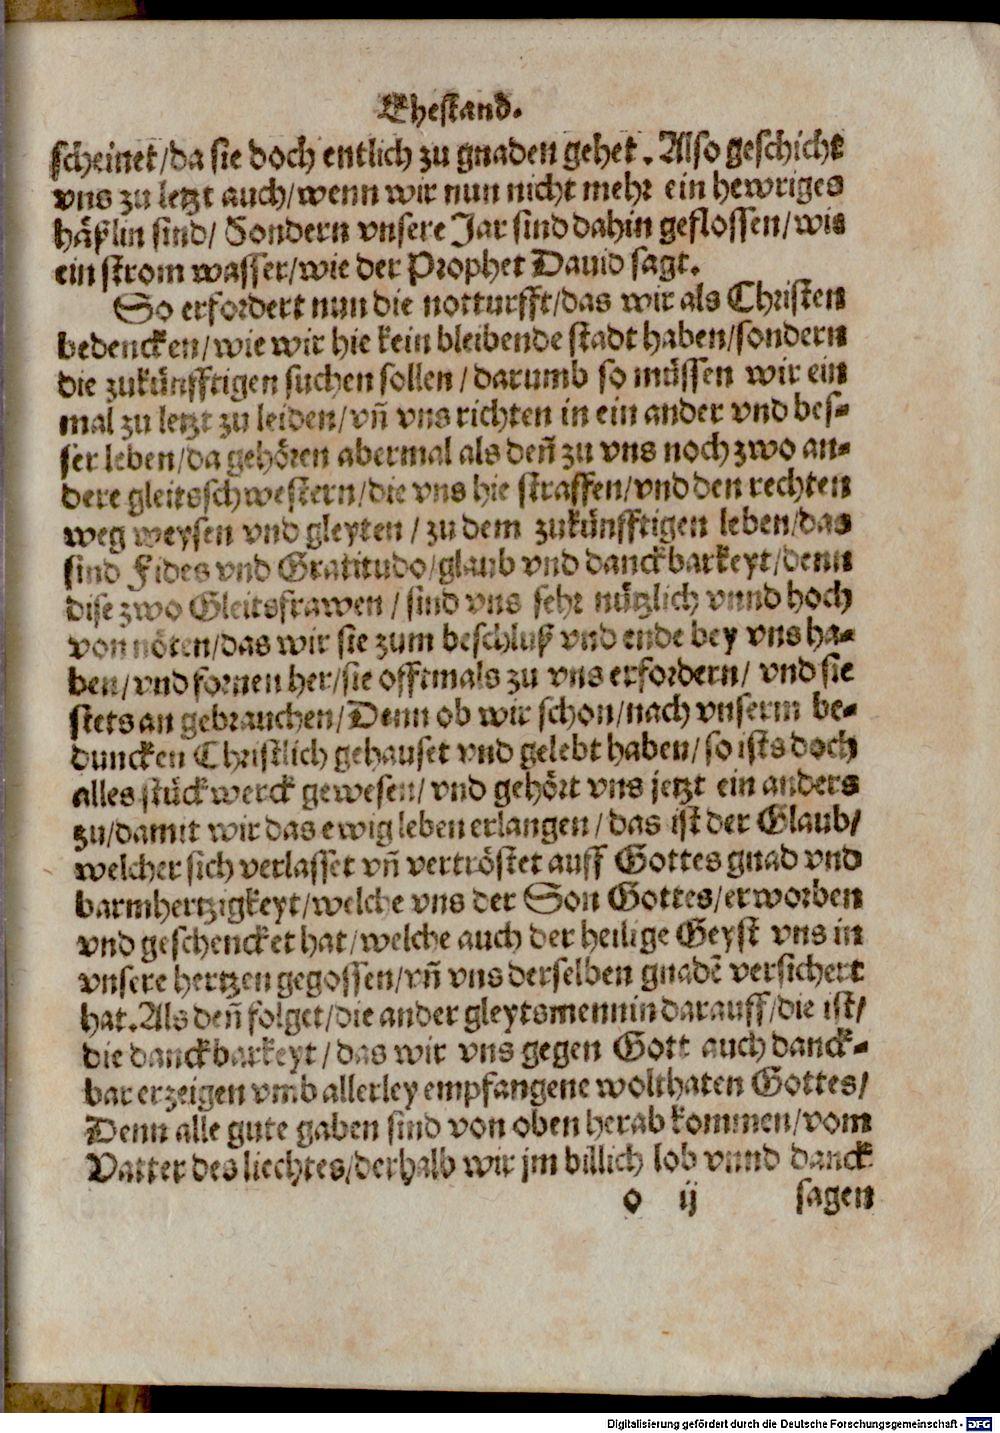 Ehestand.
scheinet/da sie doch entlich zu gnaden gehet. Also geschicht
vns zu letzt auch/wenn wir nun nicht mehr ein hewriges
häßlin sind/ Sondern vnsere Jar sind dahin geflossen/wie
ein strom wasser/wie der Prophet Dauid sagt.
So erfordert nun die notturfft/das wir als Christen
bedencken/wie wir hie kein bleibende stadt haben/sondern
die zukünfftigen suchen sollen/ darumb so müssen wir ein
mal zu letzt zu leiden/vn̄ vns richten in ein ander vnd bes-
ser leben/da gehören abermal als den̄ zu vns noch zwo an-
dere gleitsschwestern/die vns hie straffen/vnd den rechten
weg weysen vnd gleyten/ zu dem zukünfftigen leben/das
sind Fides vnd Gratitudo/glaub vnd danckbarkeyt/denn
dise zwo Gleitsfrawen/ sind vns sehr nützlich vnnd hoch
von nöten/das wir sie zum beschluß vnd ende bey vns ha-
ben/vnd fornen her/sie offtmals zu vns erfordern/ vnd sie
stets an gebrauchen/Denn ob wir schon/nach vnserm be-
duncken Christlich gehauset vnd gelebt haben/so ists doch
alles stückwerck gewesen/ vnd gehört vns jetzt ein anders
zu/damit wir das ewig leben erlangen/das ist der Glaub/
welcher sich verlasset vn̄ vertröstet auff Gottes gnad vnd
barmhertzigkeyt/welche vns der Son Gottes/erworben
vnd geschencket hat/welche auch der heilige Geyst vns in
vnsere hertzen gegossen/vn̄ vns derselben gnadē versichert
hat. Als den̄ folget/die ander gleytsmennin darauff/die ist/
die danckbarkeyt/das wir vns gegen Gott auch danck-
bar erzeigen vmb allerley empfangene wolthaten Gottes/
Denn alle gute gaben sind von oben herab kommen/vom
Vatter des liechtes/derhalb wir jm billich lob vnnd danck
o ij sagen
Digitalisierung gefördert durch die Deutsche Forschungsgemeinschaft - DFG